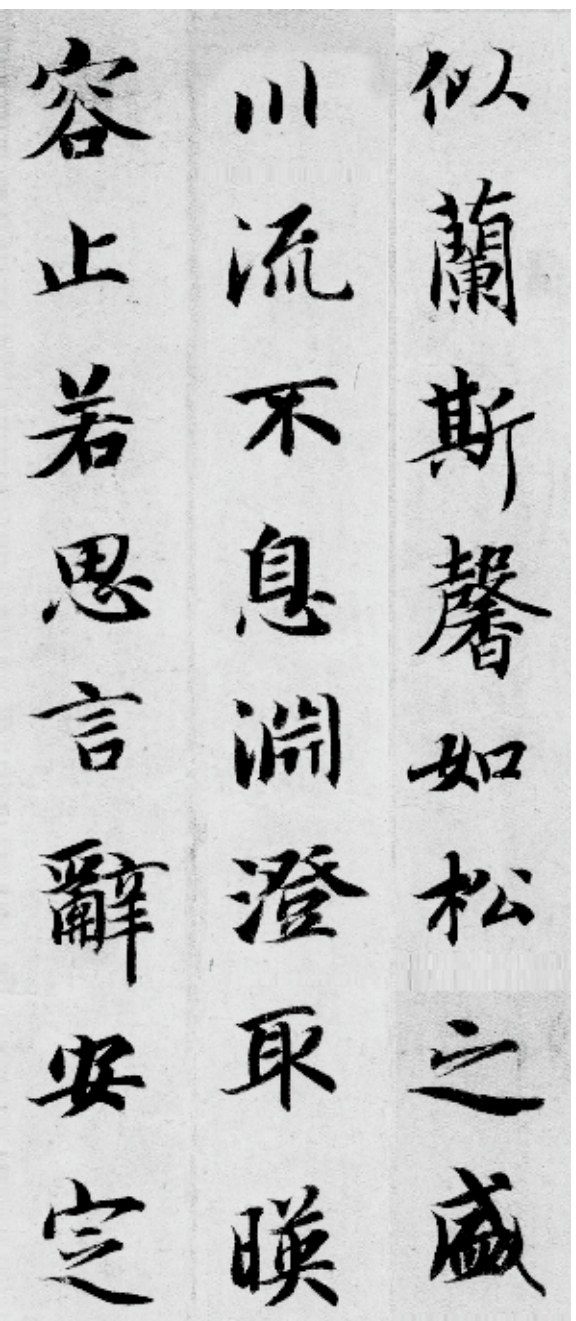 似蘭斯馨如松之盛
川流不息淵澄取暎
容止若思言辭安定